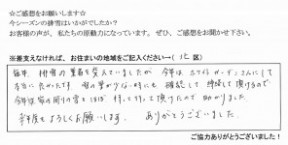 ☆ご感想をお願いします☆
今シーズンの排雪はいかがでしたか？
お客様の声が、私たちの原動力になっています。ぜひ、ご感想をお聞かせ下さい。
※差支えなければ、お住まいの地域をご記入ください→（北 区）
毎年、排雪の業者を変えていましたが 今年は、ホワイトガーデンさんにして
本当に良かったです。雪の量が少ない時にも 継続して 排雪して頂けるので
今年は家の周りの雪を ほぼ 持って行って頂けたので助かりました。
来年度もよろしくお願いします。 ありがとうございました。
ご協力ありがとうございました！